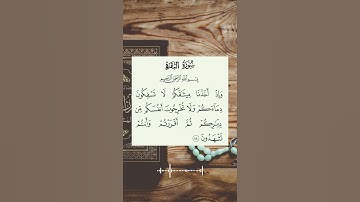 سُورَةُ البَقَرَةِ
بِسْمِ اللَّهِ الرَّحْمَٰنِ الرَّحِيمِ
وَإِذْ أَخَذْنَا مِيثَٰقَكُمْ لَا تَسْفِكُونَ
دِمَآءَكُمْ وَلَا تُخْرِجُونَ أَنفُسَكُم مِّن
دِيَٰرِكُمْ ثُمَّ أَقْرَرْتُمْ وَأَنتُمْ
تَشْهَدُونَ